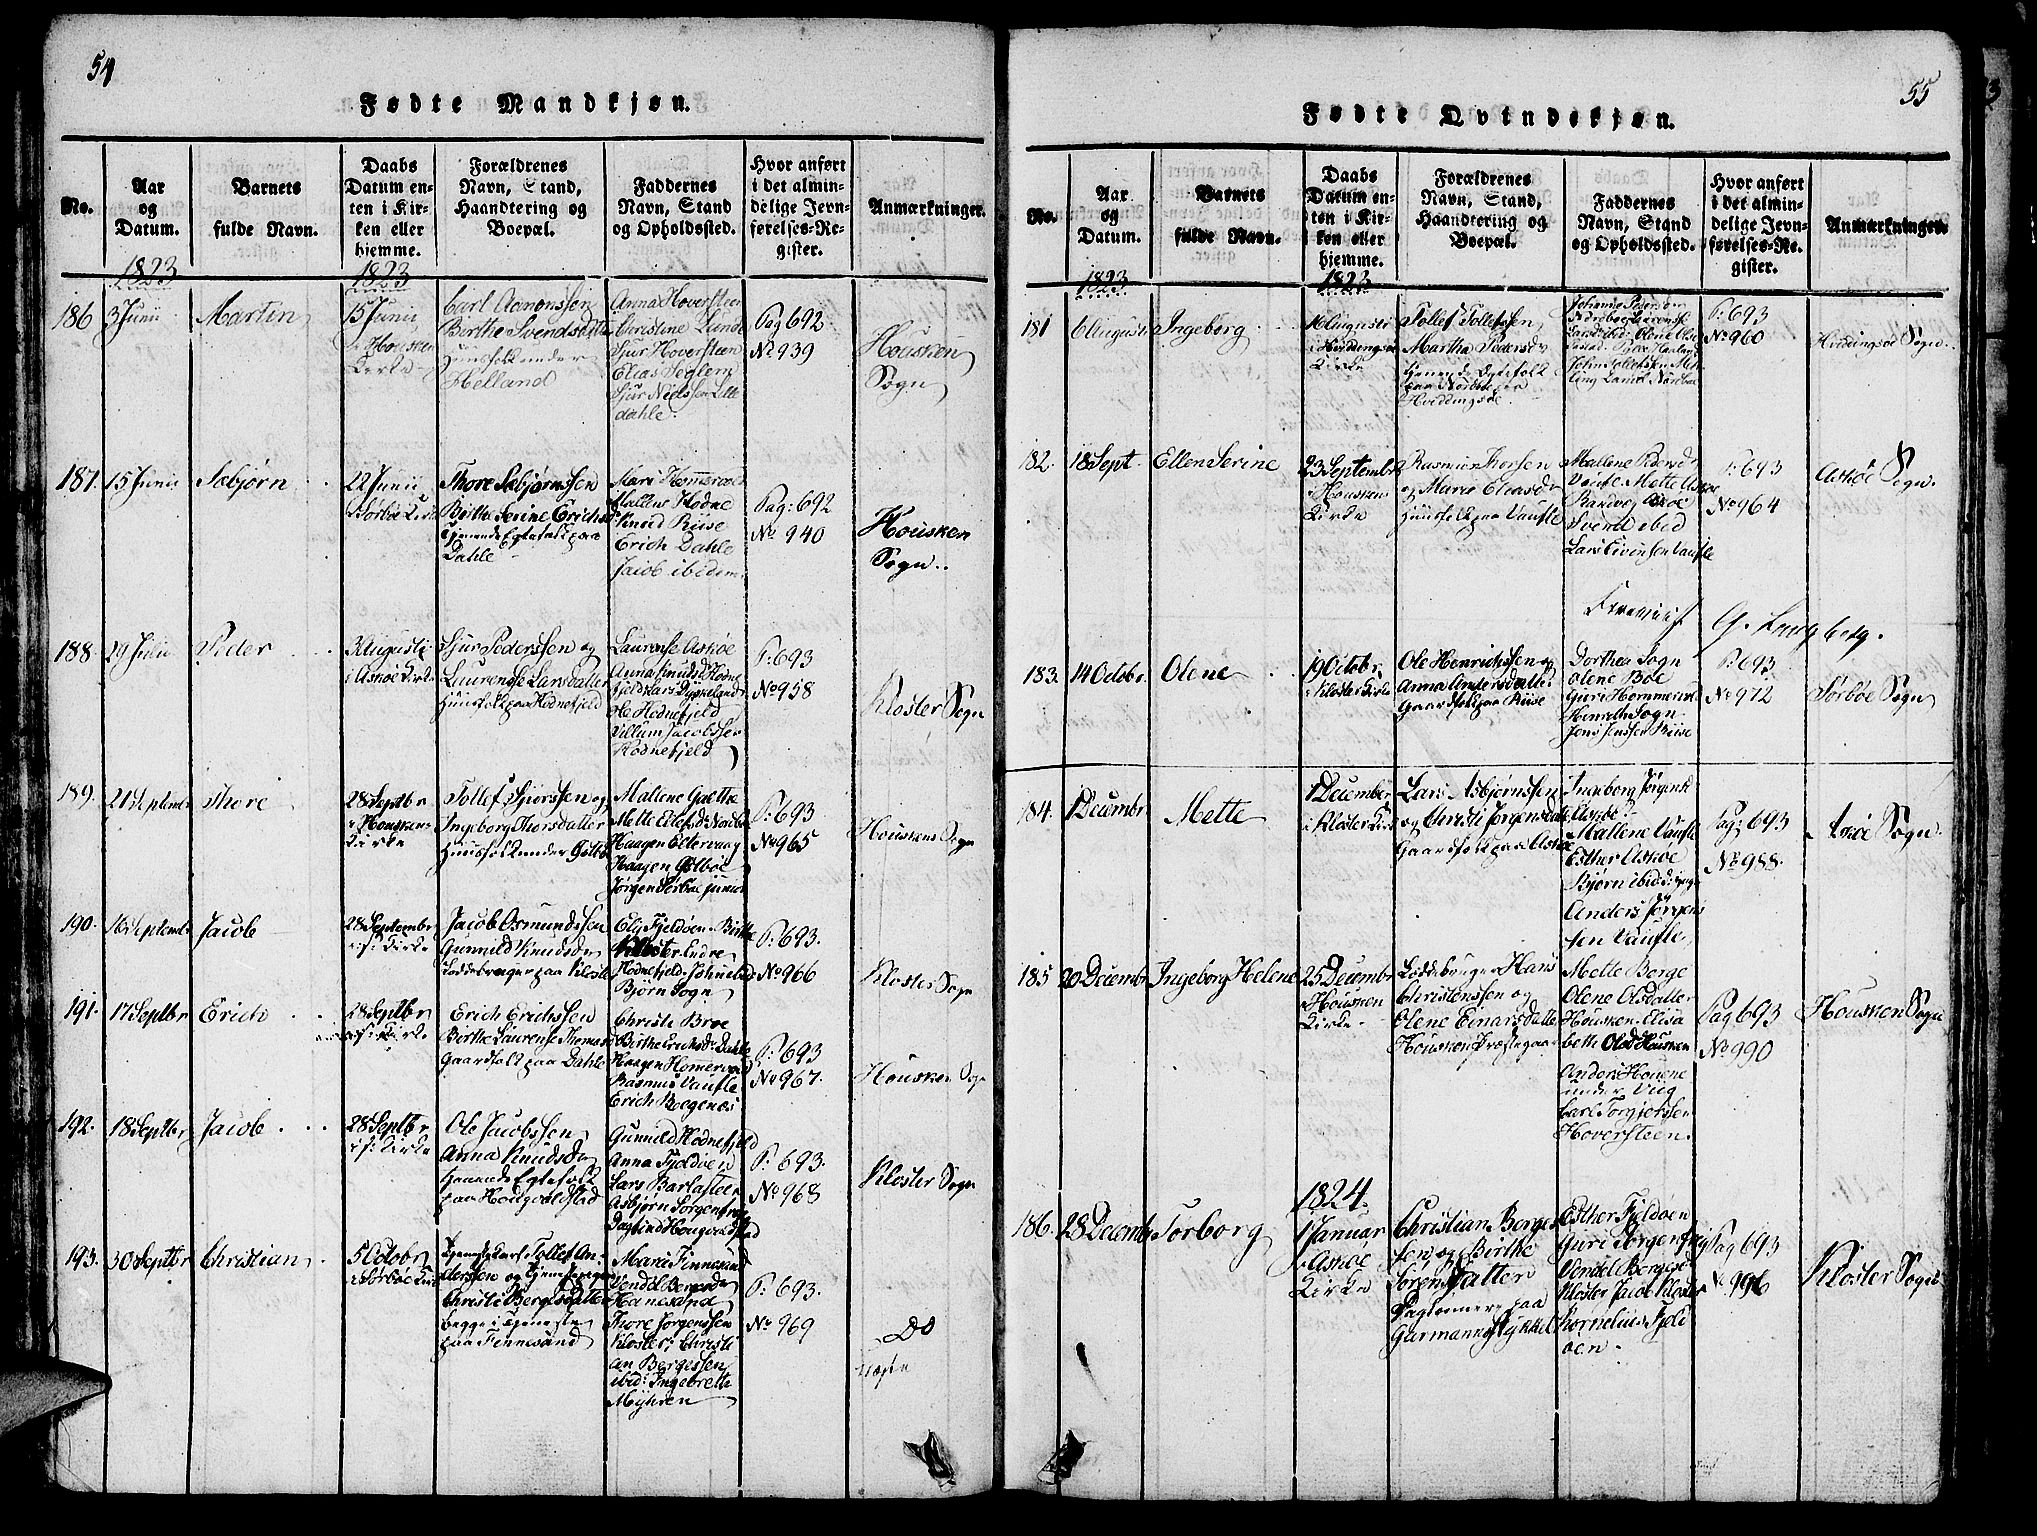 54
Fødte Mandkjøn.
No.
Aar
og
Datum.
Barnets
fulde Navn.
Daabs
Datum en-
ten i Kir-
ken eller
hjemme.
Forældrenes
Navn, Stand,
Haandtering og
Boepæl.
Faddernes
Navn, Stand
og Opholdssted.
Hvor anført
i det almin-
delige Jevn-
førelses-Re-
gister.
Anmærkninger.
1823
1823
186
3 Junii
Martin
15 Junii
i Housken
Kirke
Carl Aanonssen
Birthe Svendsdatter
Huusfolk under
Helland
Anna Hoversteen
Christine Lunde
Sjur Hoversteen
Elias Teglem
Sjur Nielssen Litle
dahle.
Pag 692
No 939
Housken
Sogn
187.
15 Junii
Sæbjørn
22 Junii
Sørbøe Kirke
Thore Sæbjørnssen
Birthe Serine Erichsd
tjenende Egtefolk paa
Dahle
Kari Homersand
Mallene Hodne
Knud Riise
Erich Dahle
Jacob ibidem
Pag: 692
No 940
Housken
Sogn.
188
29 Julii
Peder
3 Augusti
i Askøe Kirke
Sjur Pederssen og
Laurense Larsdatter
Huusfolk paa Hodnefjeld
Laurense Askøe
Anna Knudsd Hodne
fjeld Kari Dyskeland
Ole Hodnefjeld
Villum Jacobssen
Hodnefjeld
P: 693
No 958
Kloster Sogn
189.
21 Septembr
Thore
28 Septbr
i Houskens
Kirke
Tollef Sjurssen og
Ingeborg Thorsdatter
Huusfolk under Østbø
Mallene Gøette
Mette Eilefsd: Nordbø
Haagen Eltervaag
Haagen Østbøe
Jørgen Sørbøe junior
P: 693
No 965
Houskens Sogn
190.
16 Septembr
Jacob
28 Septembr
i s: Kirke
Jacob Osmundssen
Gunnild Knudsdr
Loddebruger paa Kloster
Eli Fjeldøen. Birthe
Kloster Endre
Hodnefjeld.
Bjørn Sogn
P: 693.
No 966
Kloster Sogn
191.
17 Septbr
Erich
28 Septbr
i s: Kirke
Erich Erichssen
Birthe Laurense Thomasd
Gaardfolk paa Dahle
Christi Broe
Birthe Erichsdr Dahle
Haagen Homersand
Rasmus Vaustle
Erich Bøegenæs
P: 693
No 967.
Housken Sogn
192.
18 Septbr
Jacob
28 Septbr
i s: Kirke
Ole Jacobssen
Anna Knudsdr
tjenende Egtefolk
paa Hougvaldstad
Gunnild Hodnefjeld
Anna Fjeldøen
Lars Barlasteen
Asbjørn Sørgenfrey
Daglind Hougvaldstad
P: 693.
No 968
Kloster Sogn
193.
30 Septbr
Christian
5 Octobr
i Sørbøe Kirke
tjeneste Karl Tollef An-
derssen og tjeneste pigen
Christi Bergesdatter
begge i tjeneste
paa Finnesand
Marie Finnesand
Vendel Bergesdr
Hanesand
Thore Jørgenssen
Kloster, Christi
an Bergessen
ibid: Ingebrette
Myhren
P: 693.
No 969
Do
55
Fødte Qvindekjøn.
No.
Aar
og
Datum.
Barnets
fulde Navn.
Daabs
Datum en-
ten i Kir-
ken eller
hjemme.
Forældrenes
Navn, Stand,
Haandtering og
Boepæl.
Faddernes
Navn, Stand
og Opholdssted.
Hvor anført
i det almin-
delige Jevn-
førelses-Re-
gister.
Anmærkninger.
1823
1823
181
6 Augusti
Ingeborg
Augusti
i Hviddingsøe
Kirke
Tollef Tollefssen
Martha Pedersdr
tjenende Egtefolk
paa Nordbøe paa
Hviddingsøe.
P: 693
No 960
Hviddingsøe Sogn.
182.
18 Sept.
Ellen Serine
23 Septembr
i Houskens
Kirke
Rasmus Thorsen
og Maria Eliasdr
Huusfolk paa Vaustle
Mallene Pedersdr
Vaustle Mette Askøe
Randvei Askøe
Svend ibid
Lars Eivindsen Vaustle
P: 693
No 964
Askøe Sogn.
G. Lungberg.
183.
14 Octobr
Olene
19 Octobr,
i Kloster Kirke
Ole Henrichssen og
Anna Andersdatter
Gaardfolk paa Riise
Dorthea Sogn
Olene Bøe
Guri Hommersand
Henrich Sogn
Jens Jenssen Riise
P: 693
No 972
Sørbøe Sogn
184.
1 Decembr
Mette
1 December
i Kloster Kirke
Lars Asbjørnssen
og Christi Jørgensdatter
Gaardfolk paa Askøe
Ingeborg Jørgensd
Askøe
Mallene Vaustle
Esther Askøe
Bjørn ibid:
Anders Jørgens
sen Vaustle
Pag 693
No 988.
Askøe Sogn.
185
20 Decembr
Ingeborg Helene
25 Decembr
i Housken
Kirke
Loddebruger Hans
Christenssen og
Olene Einarsdatter
Housken Præstegaard
Mette Berge
Olene Olsdatter
Housken. Elisa
beth Olsd Housken
Anders Houene
under Viig
Carl Torgjerssen
Hoversteen.
Pag 693
No 990
Housken Sogn
1824.
186.
28 Decembr
Torborg
1 Januar
i Askøe
Kirke
Christian Berges
sen, og Birthe
Sørensdatter
Daglønnere paa
Garmannslykke
Esther Fjeldøen
Guri Sørgenfrey
Vendel Berges
Kloster Jacob Kloster
Kornelius Fjeld
øen.
Pag 693
No 996
Kloster Sogn